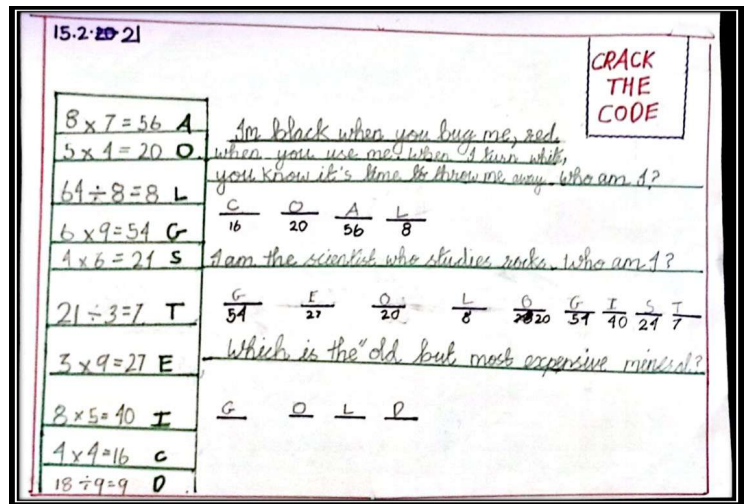 15.2.2021
CRACK
THE
CODE
8 x 7 = 56 A
5 x 4 = 20 O
64 ÷ 8 = 8 L
6 x 9 = 54 G
4 x 6 = 24 S
21 ÷ 3 = 7 T
3 x 9 = 27 E
8 x 5 = 40 I
4 x 4 = 16 C
18 ÷ 9 = 9 D
Im black when you buy me, red
when you use me. When I turn white,
you know it's time to throw me away. Who am I?
C O A L
16 20 56 8
I am the scientist who studies rocks. Who am I?
G E O L O G I S T
54 27 20 8 20 54 40 24 7
Which is the "old but most expensive mineral?
G O L D